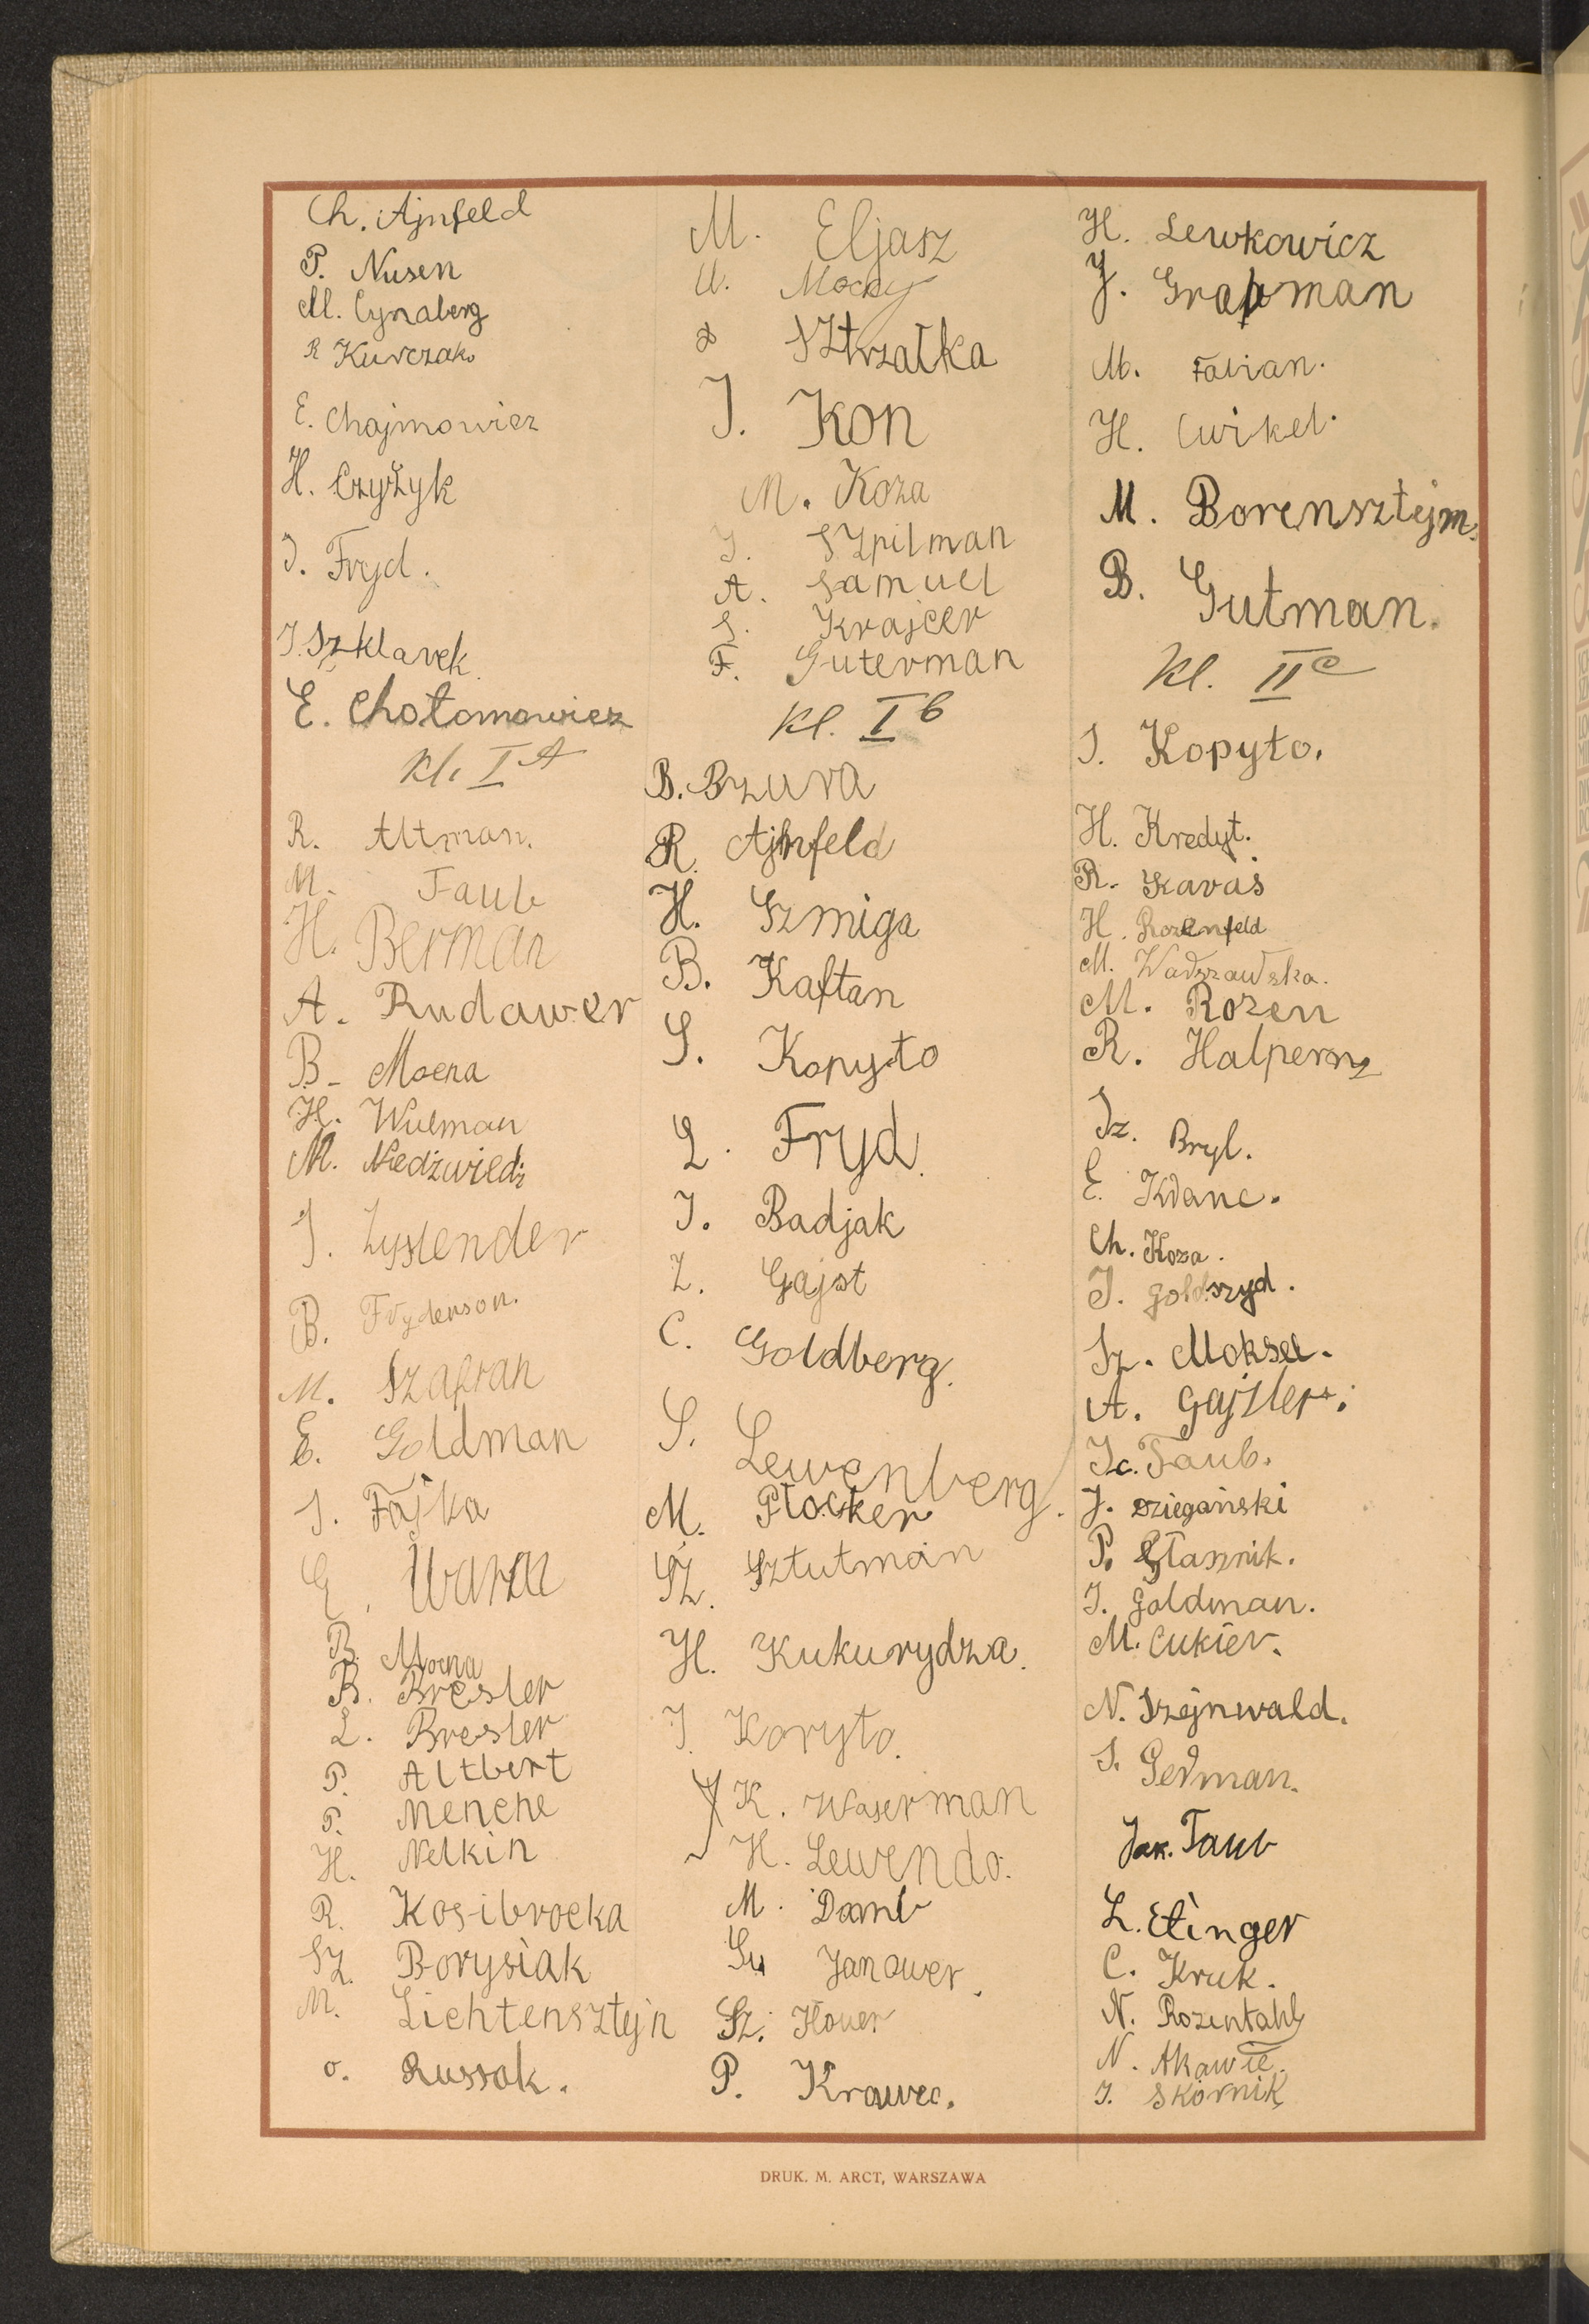 Ch. Ajnfeld
P. Nusen
M. Cynaberg
R Kurczak
E. Chajmowicz
H. Czyżyk
J. Fryd.
J. Szklarek
E. Chotomowicz
Kl. I A
R. Altman.
M. Taub
H. Berman
A. Rudawer
B- Mocna
H. Wulman
M. Niedźwiedź
J. Łyslender
B. Frydenson.
M. Szafran
E. Goldman
J. Fajka
G. Warza
B. Mocna
B. Bresler
L. Bresler
P. Altbert
P. Menche
H. Nelkin
R. Kosibrocka
Sz. Borysiak
M. Lichtensztejn
O. Russak.
M. Eljasz
M. Mocny
Sztrzałka
J. Kon
M. Koza
J. Szpilman
A. Samuel
S. Krajcer
F. Guterman
Kl. I b
B. Bzura
R. Ajnfeld
H. Szmiga
B. Kaftan
S. Kopyto
L. Fryd.
J. Badjak
Z. Gajst
C. Goldberg.
S. Lewenberg.
M. Płocker
Sz. Sztutman
H. Kukurydza.
J. Koryto.
K. Waserman
H. Lewendo.
M. Domb
Janower.
Sz. Hower
P. Krawec.
H. Lewkowicz
J. Grapman
M. Fabian.
H. Cwikel.
M. Borensztejn.
B. Gutman.
Kl. II c
J. Kopyto.
H. Kredyt.
R. Karaś
H. Rozenfeld
M. Warszawska.
M. Rozen
R. Halpern
Sz. Bryl.
E. Kranc.
Ch. Koza.
J. Goldszyd.
Sz. Moksel.
A. Gajzler.
Ic. Taub.
J. Dziegański
P. Głasnik.
J. Goldman.
M. Cukier.
N. Szejnwald.
S. German.
Jak. Taub
L. Etinger
C. Kruk.
N. Rozentahl
N. Akawie.
J. Skórnik
DRUK. M. ARCT, WARSZAWA